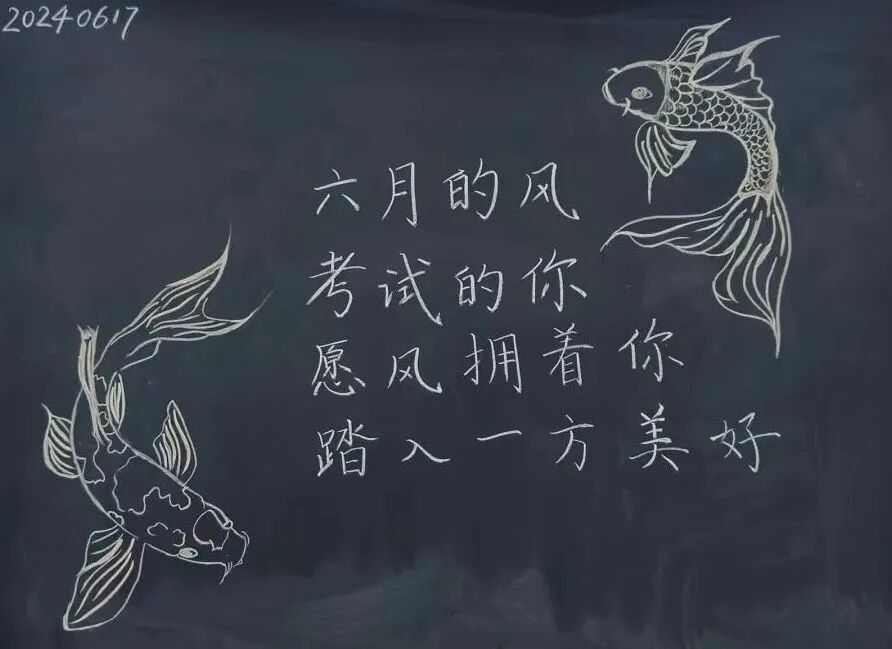 20240617
六月的风
考试的你
愿风拥着你
踏入一方美好